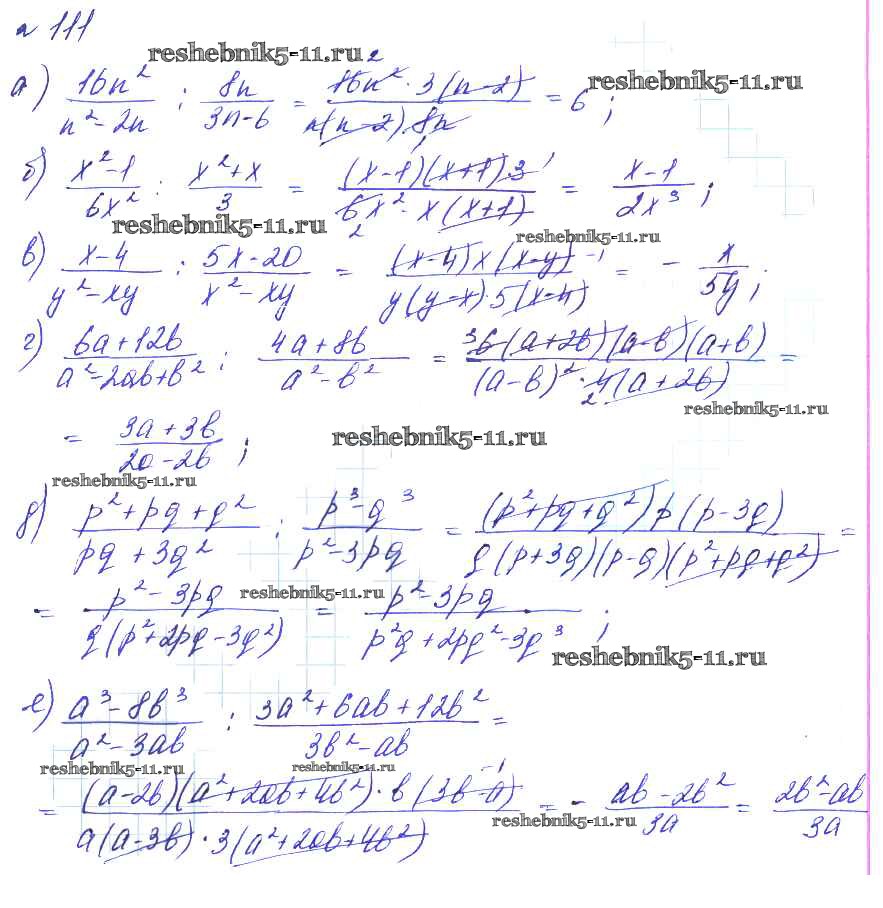 № 111
reshebnik5-11.ru
reshebnik5-11.ru
а) 16n²/(n²-2n) : 8n/(3n-6) = 16n²·3(n-2)/(n(n-2)·8n) = 6;
б) (x²-1)/6x² : (x²+x)/3 = (x-1)(x+1)·3/(6x²·x(x+1)) = (x-1)/2x³;
reshebnik5-11.ru
reshebnik5-11.ru
в) (x-4)/(y²-xy) : (5x-20)/(x²-xy) = (x-4)x(x-y)/(y(y-x)·5(x-4)) = -x/5y;
г) (6a+12b)/(a²-2ab+b²) : (4a+8b)/(a²-b²) = 6(a+2b)(a-b)(a+b)/((a-b)²·4(a+2b)) =
reshebnik5-11.ru
= (3a+3b)/(2a-2b);
reshebnik5-11.ru
reshebnik5-11.ru
д) (p²+pq+q²)/(pq+3q²) : (p³-q³)/(p²-3pq) = (p²+pq+q²)p(p-3q)/(q(p+3q)(p-q)(p²+pq+q²)) =
reshebnik5-11.ru
= (p²-3pq)/(q(p²+2pq-3q²)) = (p²-3pq)/(p²q+2pq²-3q³);
reshebnik5-11.ru
е) (a³-8b³)/(a²-3ab) : (3a²+6ab+12b²)/(3b²-ab) =
reshebnik5-11.ru
reshebnik5-11.ru
= (a-2b)(a²+2ab+4b²)·b(3b-a)/(a(a-3b)·3(a²+2ab+4b²)) = -(ab-2b²)/3a = (2b²-ab)/3a
reshebnik5-11.ru